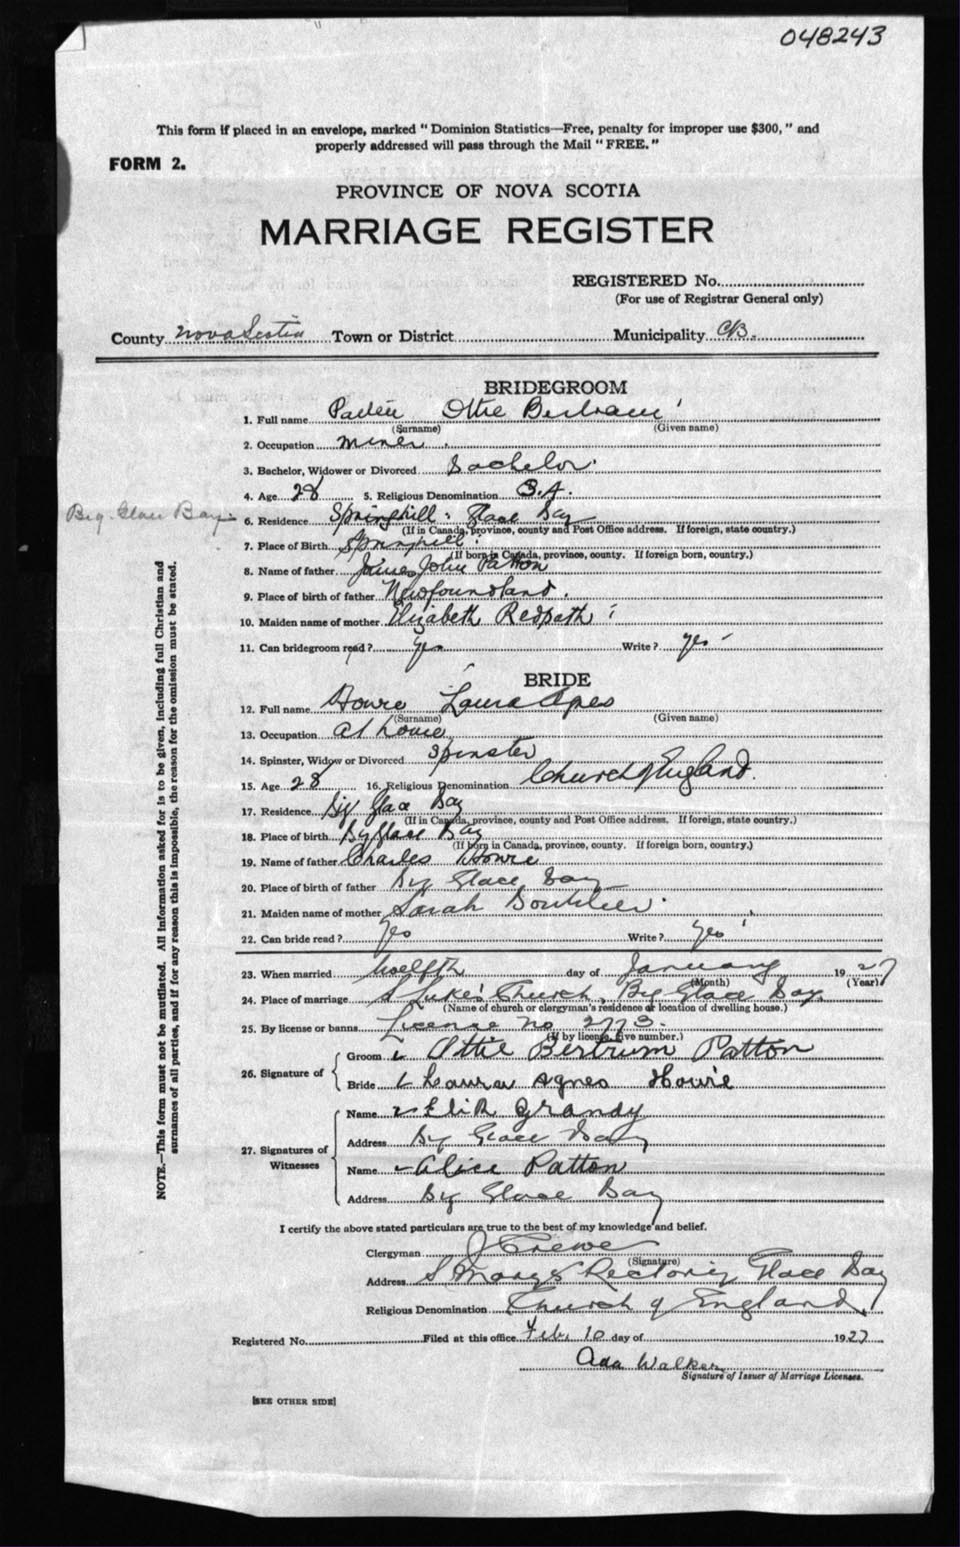 048243
This form if placed in an envelope, marked "Dominion Statistics—Free, penalty for improper use $300," and
properly addressed will pass through the Mail "FREE."
FORM 2.
PROVINCE OF NOVA SCOTIA
MARRIAGE REGISTER
REGISTERED No.
(For use of Registrar General only)
County Nova Scotia Town or District Municipality C.B.
BRIDEGROOM
1. Full name Ottie Bertram
(Surname) (Given name)
2. Occupation miner
3. Bachelor, Widower or Divorced Bachelor
4. Age 28 5. Religious Denomination S.A.
Big Glace Bay
6. Residence Springhill Glace Bay
(If in Canada, province, county and Post Office address. If foreign, state country.)
7. Place of Birth Springhill
(If born in Canada, province, county. If foreign born, country.)
8. Name of father James John Patton
9. Place of birth of father Newfoundland.
10. Maiden name of mother Elizabeth Redpath
11. Can bridegroom read? yes Write? yes
BRIDE
12. Full name Howie Laura Agnes
(Surname) (Given name)
13. Occupation at home
14. Spinster, Widow or Divorced Spinster
15. Age 28 16. Religious Denomination Church of England.
17. Residence Big Glace Bay
(If in Canada, province, county and Post Office address. If foreign, state country.)
18. Place of birth Big Glace Bay
(If born in Canada, province, county. If foreign born, country.)
19. Name of father Charles Howie
20. Place of birth of father Big Glace Bay
21. Maiden name of mother Sarah Boutilier
22. Can bride read? Yes Write? Yes
23. When married twelfth day of January 1927
(Month) (Year)
24. Place of marriage S Luke's Church, Big Glace Bay.
(Name of church or clergyman's residence or location of dwelling house.)
25. By license or banns License no 2773.
(If by license, give number.)
26. Signature of
Groom Ottie Bertrum Patton
Bride Laura Agnes Howie
27. Signatures of Witnesses
Name Grandy
Address Big Glace Bay
Name Alice Patton
Address Big Glace Bay
I certify the above stated particulars are true to the best of my knowledge and belief.
Clergyman J Crewe
(Signature)
Address S Mary's Rectory Glace Bay
Religious Denomination Church of England
Registered No. Filed at this office Feb. 10 day of 1927
Ada Walker
Signature of Issuer of Marriage Licenses.
[SEE OTHER SIDE]
NOTE.—This form must not be mutilated. All information asked for is to be given, including full Christian and
surnames of all parties, and if for any reason this is impossible, the reason for the omission must be stated.